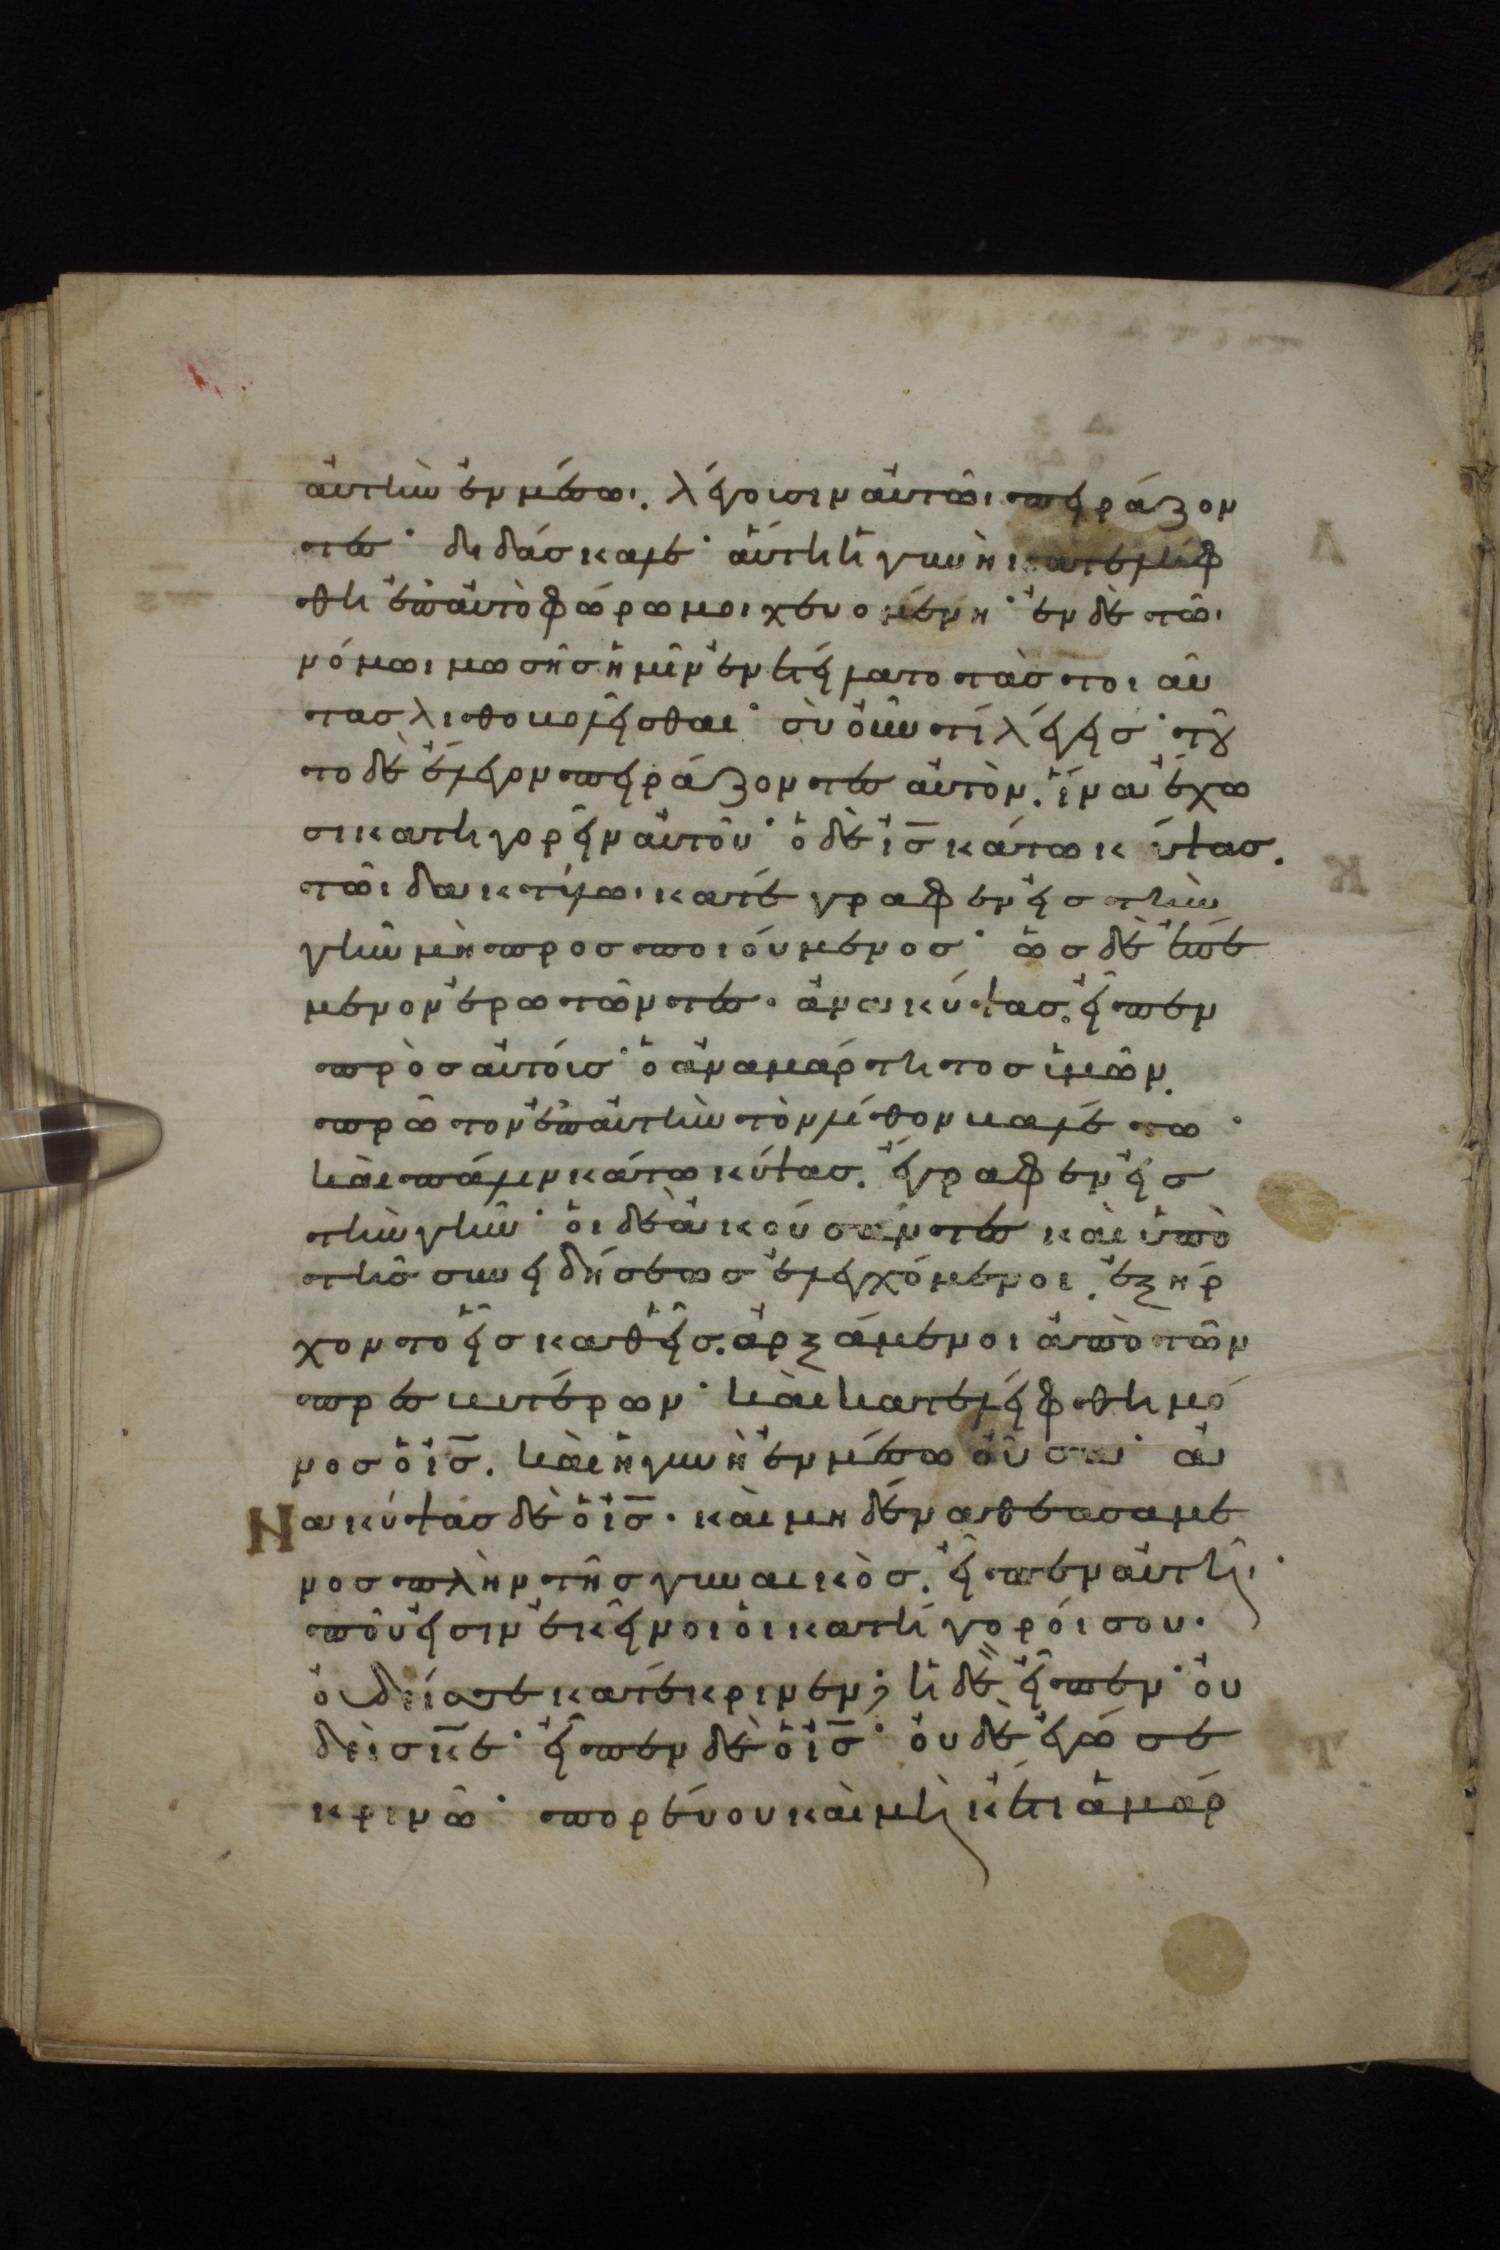 ἀυτὴν ἐν μέσωι. λέγουσιν ἀυτῶι πειράζον
τες· διδάσκαλε· ἀύτη ἡ γυνὴ κατελήφ
θη ἐπ ἀυτοφώρω μοιχευομένη· ἐν δὲ τῶι
νόμωι μωσῆς ἡμῖν ἐνετείλατο τὰς τοι αύ
τας λιθοβολεῖσθαι· σὺ οὖν τί λέγεις· τοῦ
το δὲ ἔλεγον πειράζοντες ἀυτὸν. ἵνα ἔχω
σι κατηγορεῖν ἀυτοῦ· ὁ δὲ ἰ̅ς̅ κάτω κύψας.
τῶι δακτύλωι κατέγραφεν εἰς τὴν
γῆν μὴ προσποιούμενος· ὡς δὲ ἐπέ
μενον ἐρωτῶντες· ἀνακύψας. εἶπεν
πρὸς ἀυτόυς· ὁ ἀναμάρτητος ὑμῶν.
πρῶτον ἐπ ἀυτὴν τὸν λίθον βαλέτω·
κὰι πάλιν κάτω κύψας. ἔγραφεν εἰς
τὴν γῆν· ὁι δὲ ἀκούσαντες κὰι ὑπὸ
τῆς συνειδήσεως ἐλεγχόμενοι. ἐξήρ
χοντο εἷς καθεῖς. ἀρξάμενοι ἀπὸ τῶν
πρεσβυτέρων· κὰι κατελείφθη μό
νος ὁ ἰ̅ς̅. κὰι ἡ γυνὴ ἐν μέσω οὖσα· ἀ
Νακύψας δὲ ὁ ἰ̅ς̅· κὰι μηδένα θεασάμε
νος πλὴν τῆς γυναικὸς. εἶπεν ἀυτῆι·
ποῦ εἰσιν ἐκεῖνοι ὁι κατήγοροί σου·
ὀυδείς σε κατέκρινεν; ἡ δὲ εἶπεν· ὀυ
δεὶς κ̅ε̅· εἶπεν δὲ ὁ ἰ̅ς̅· ὀυδὲ ἐγώ σε
κρινῶ· πορέυου κὰι μὴκέτι ἁμάρ